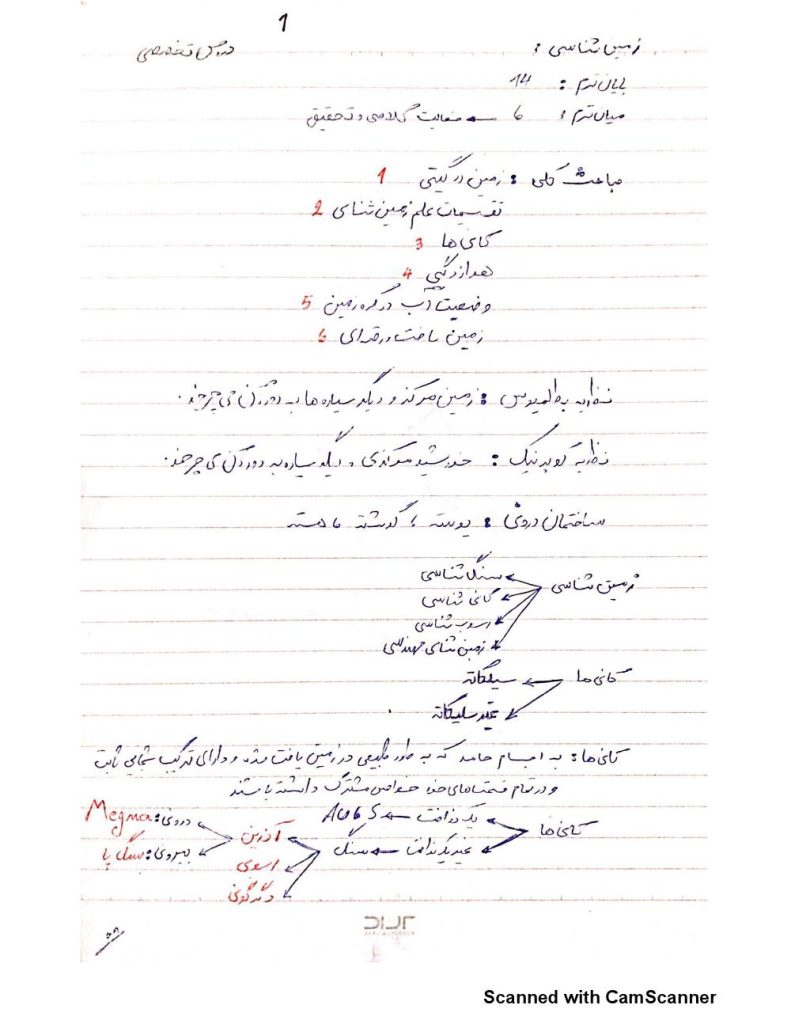 1
زمین شناسی : دروس تخصصی
پایان ترم : 14
میان ترم : 6 ← فعالیت کلاسی و تحقیق
مباحث کلی : زمین در گیتی 1
تقسیمات علم زمین شناسی 2
کانی ها 3
هوازدگی 4
وضعیت آب در کره زمین 5
زمین ساخت ورقه ای 6
نظریه بطلمیوس : زمین مرکز و دیگر سیاره ها به دور آن می چرخند.
نظریه کوپرنیک : خورشید مرکزی و دیگر سیاره به دور آن می چرخند.
ساختمان درونی : پوسته ، گوشته ، هسته
زمین شناسی
سنگ شناسی
کانی شناسی
رسوب شناسی
زمین شناسی مهندسی
کانی ها ← سیلیکاته
غیر سیلیکاته
کانی ها : به اجسام جامد که به طور طبیعی در زمین یافت شده و دارای ترکیب شیمیایی ثابت
و در تمام قسمتهای خود خواص مشترک داشته باشند
کانی ها
یکنواخت ←
غیر یکنواخت ← سنگ
آذرین
درونی : Megma
بیرونی : سنگ پا
رسوبی
دگرگونی
Scanned with CamScanner